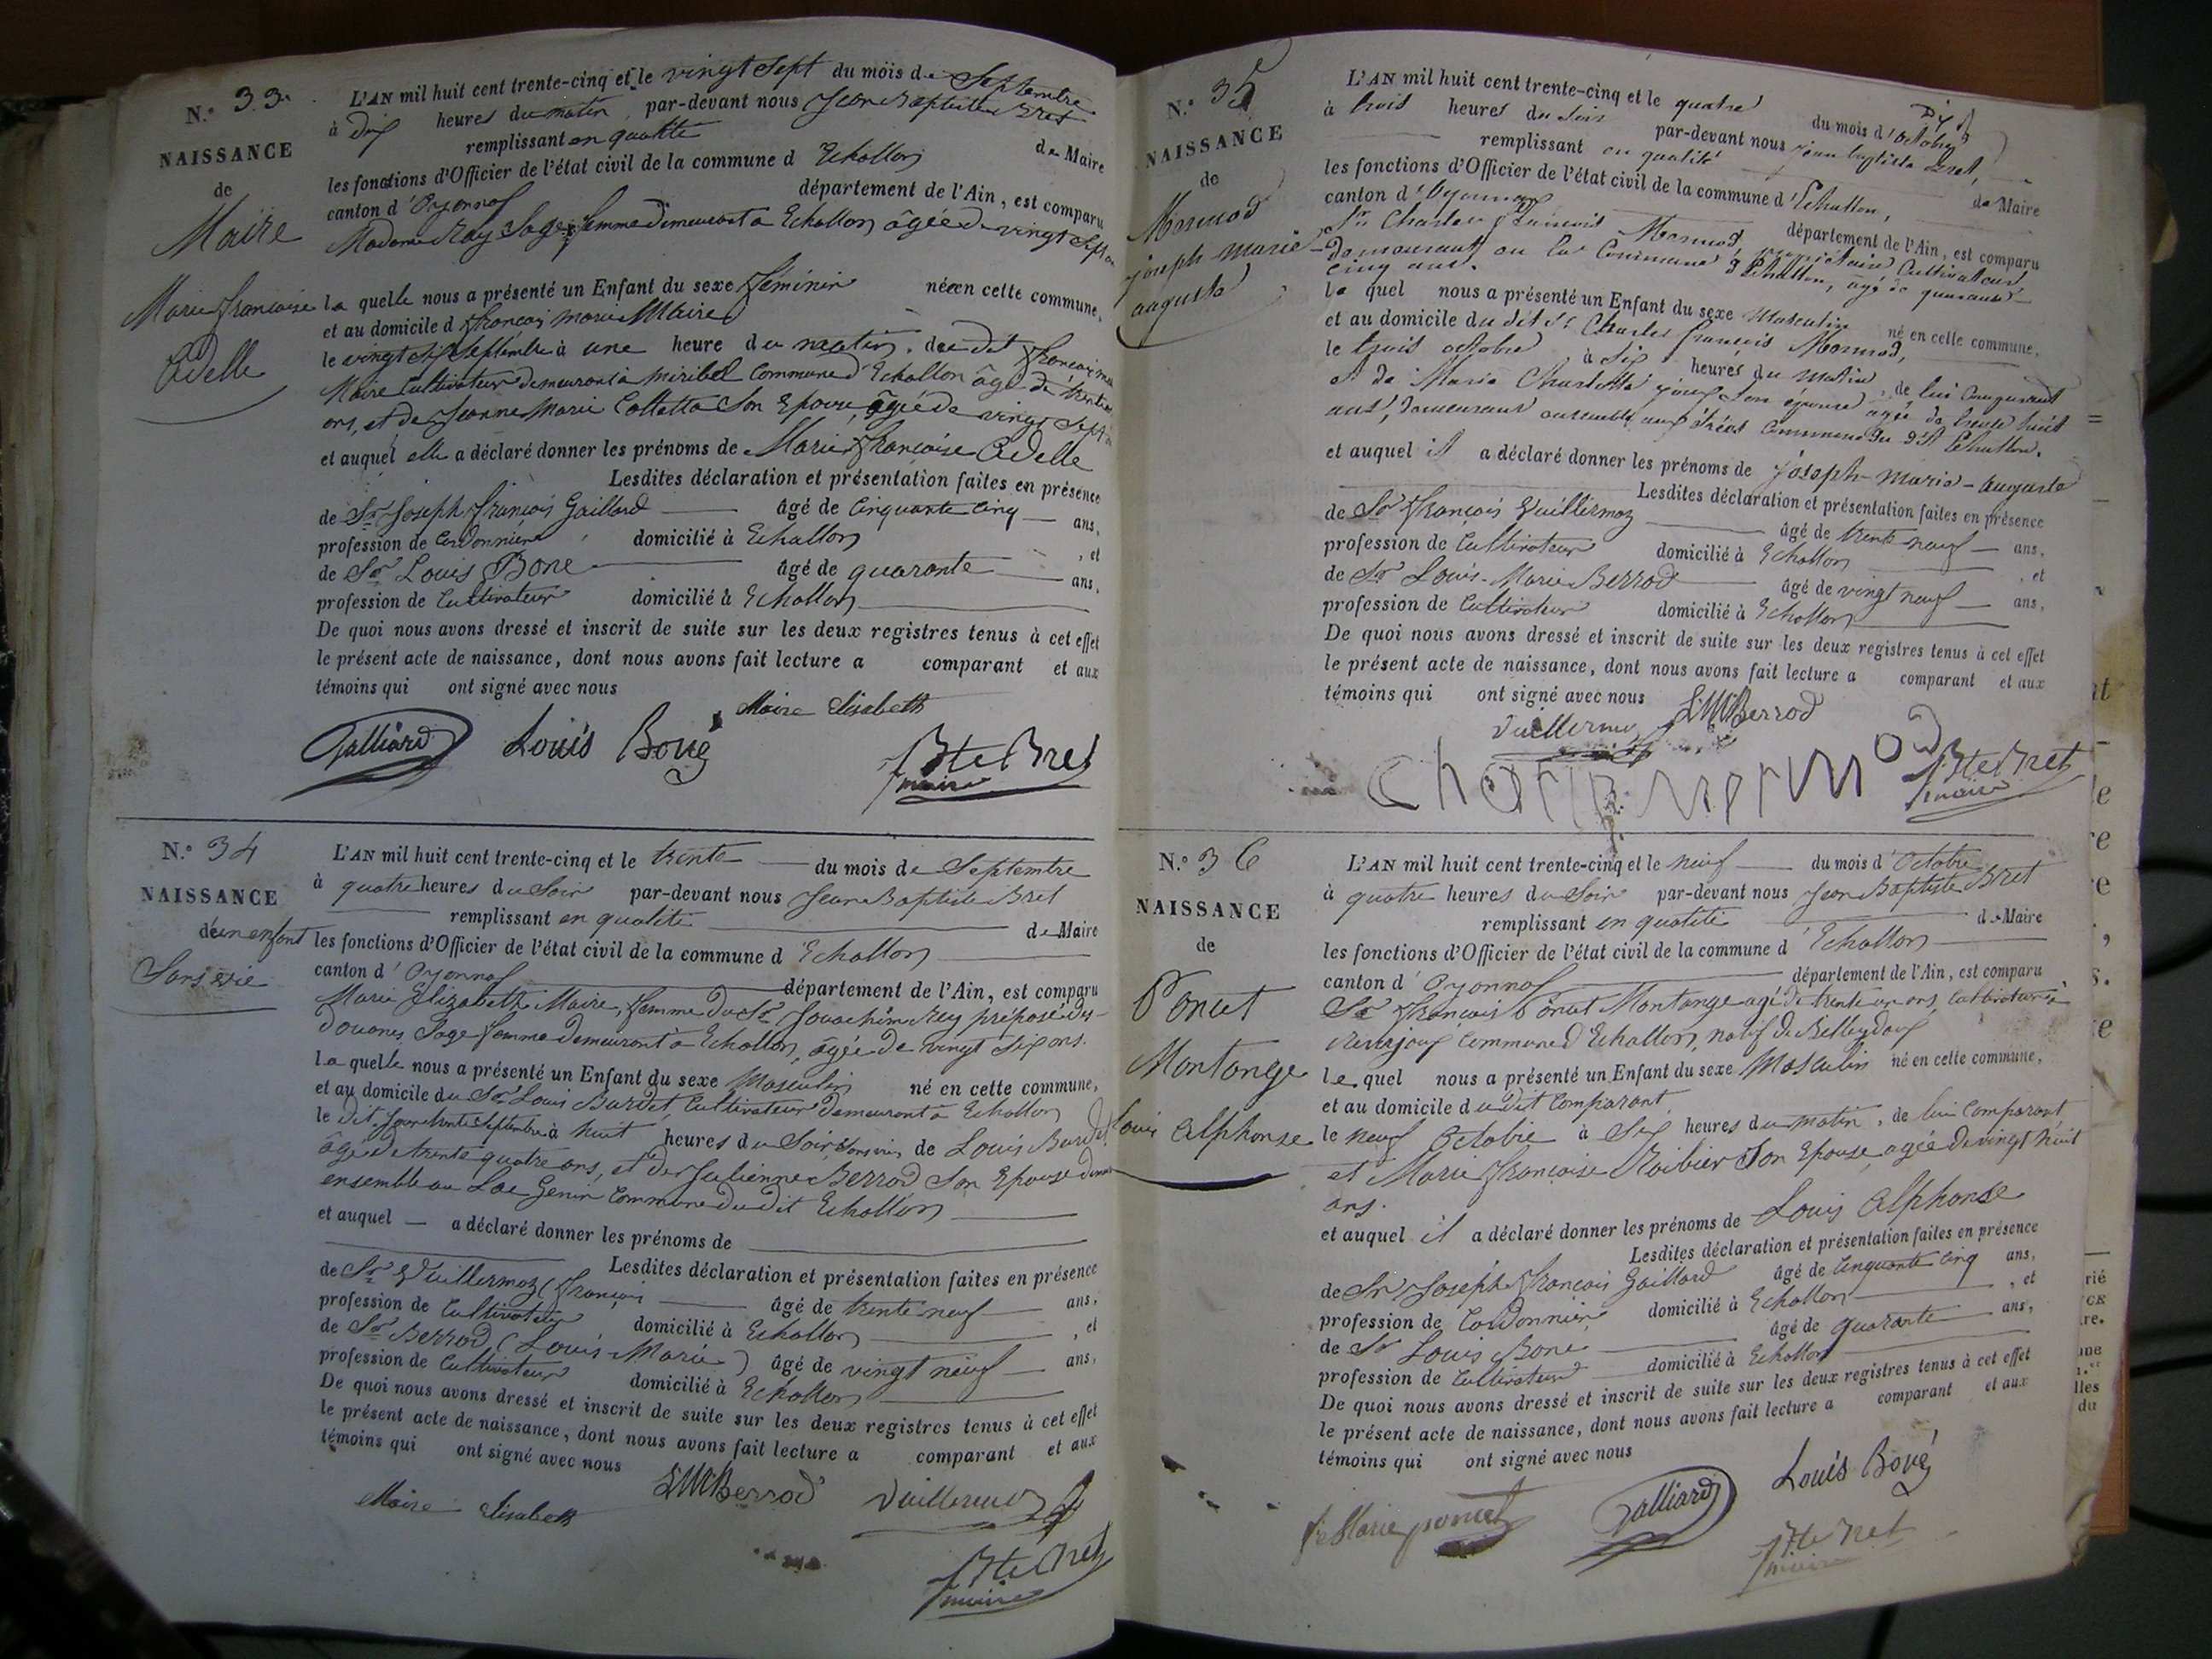 N.° 33.
NAISSANCE
de
Maire
Marie françoise
Adelle
L'AN mil huit cent trente-cinq et le vingt Sept du mois de Septembre
à dix heures du matin par-devant nous Jean Baptiste Bret
remplissant en qualité de Maire
les fonctions d'Officier de l'état civil de la commune d Echallon
canton d'Oyonnax département de l'Ain, est comparu
Madame Rey Sage femme demeurant à Echallon âgée de vingt Sept
la quelle nous a présenté un Enfant du sexe féminin née en cette commune,
et au domicile d françois marie Maire
le vingt Septembre à une heure du matin, du dit françois
Maire Cultivateur demeurant à miribel Commune d'Echallon âgé de trente
ans, et de Jeanne Marie Colletta Son Epouse âgée de vingt Sept
et auquel elle a déclaré donner les prénoms de Marie françoise Adelle
Lesdites déclaration et présentation faites en présence
de Sr Joseph françois Gaillard âgé de Cinquante cinq ans,
profession de Cordonnier domicilié à Echallon , et
de Sr Louis Bone âgé de quarante ans,
profession de Cultivateur domicilié à Echallon
De quoi nous avons dressé et inscrit de suite sur les deux registres tenus à cet effet
le présent acte de naissance, dont nous avons fait lecture a comparant et aux
témoins qui ont signé avec nous
Maire Elisabeth
Galliard Louis Boné
JBte Bret
maire
N.° 34
NAISSANCE
d'un enfant
Sans vie
L'AN mil huit cent trente-cinq et le trente du mois de Septembre
à quatre heures du Soir par-devant nous Jean Baptiste Bret
remplissant en qualité de Maire
les fonctions d'Officier de l'état civil de la commune d Echallon
canton d'Oyonnax département de l'Ain, est comparu
Marie Elizabeth Maire, femme du Sr Jouachim Rey préposé des
Douanes Sage femme demeurant à Echallon, âgée de vingt Six ans.
la quelle nous a présenté un Enfant du sexe Masculin né en cette commune,
et au domicile du Sr Louis Burdet Cultivateur demeurant à Echallon
le dit jour trente Septembre à huit heures du Soir, Sans vie de Louis Burdet
âgé de trente quatre ans, et de Julienne Berrod Son Epouse
ensemble au Lac Genin Commune du dit Echallon
et auquel a déclaré donner les prénoms de
Lesdites déclaration et présentation faites en présence
de Sr Vuillermoz (françois âgé de trente neuf ans,
profession de Cultivateur domicilié à Echallon , et
de Sr Berrod (Louis Marie) âgé de vingt neuf ans,
profession de Cultivateur domicilié à Echallon
De quoi nous avons dressé et inscrit de suite sur les deux registres tenus à cet effet
le présent acte de naissance, dont nous avons fait lecture a comparant et aux
témoins qui ont signé avec nous
Maire Elisabeth LMBerrod Vuillermoz
JBte Bret
maire
N.° 35
NAISSANCE
de
Monnod
joseph marie
auguste
L'AN mil huit cent trente-cinq et le quatre du mois d'octobre
à trois heures du soir par-devant nous jean baptiste Bret,
remplissant en qualité de Maire
les fonctions d'Officier de l'état civil de la commune d'Echallon,
canton d'Oyonnax département de l'Ain, est comparu
Sr Charles françois Monnod, propriétaire Cultivateur
demeurant en la Commune d'Echallon, agé de quarante
cinq ans.
le quel nous a présenté un Enfant du sexe Masculin né en cette commune,
et au domicile du dit Sr Charles françois Monnod,
le trois octobre à Six heures du matin, de lui Comparant
et de Marie Charlotte son epouse agée de trente huit
ans, demeurant ensemble Commune du dit Echallon.
et auquel il a déclaré donner les prénoms de joseph-marie-auguste
Lesdites déclaration et présentation faites en présence
de Sr françois Vuillermoz âgé de trente neuf ans,
profession de Cultivateur domicilié à Echallon , et
de Sr Louis-Marie Berrod âgé de vingt neuf ans,
profession de Cultivateur domicilié à Echallon
De quoi nous avons dressé et inscrit de suite sur les deux registres tenus à cet effet
le présent acte de naissance, dont nous avons fait lecture a comparant et aux
témoins qui ont signé avec nous LMBerrod
Vuillermoz
JBte Bret
maire
N.° 36
NAISSANCE
de
Poncet
Montange
Louis Alphonse
L'AN mil huit cent trente-cinq et le neuf du mois d'Octobre
à quatre heures du Soir par-devant nous Jean Baptiste Bret
remplissant en qualité de Maire
les fonctions d'Officier de l'état civil de la commune d Echallon
canton d'Oyonnax département de l'Ain, est comparu
Sr françois Poncet Montange agé de trente un ans, Cultivateur à
Commune d'Echallon, natif de Belleydoux
le quel nous a présenté un Enfant du sexe Masculin né en cette commune,
et au domicile du dit Comparant
le neuf Octobre à Six heures du matin, de lui Comparant
et Marie françoise Roibier Son Epouse agée de vingt huit
ans.
et auquel il a déclaré donner les prénoms de Louis Alphonse
Lesdites déclaration et présentation faites en présence
de Sr Joseph françois Gaillard âgé de Cinquante cinq ans,
profession de Cordonnier domicilié à Echallon , et
de Sr Louis Bone âgé de quarante ans,
profession de Cultivateur domicilié à Echallon
De quoi nous avons dressé et inscrit de suite sur les deux registres tenus à cet effet
le présent acte de naissance, dont nous avons fait lecture a comparant et aux
témoins qui ont signé avec nous
poncet Galliard Louis Boné
JBte Bret
maire